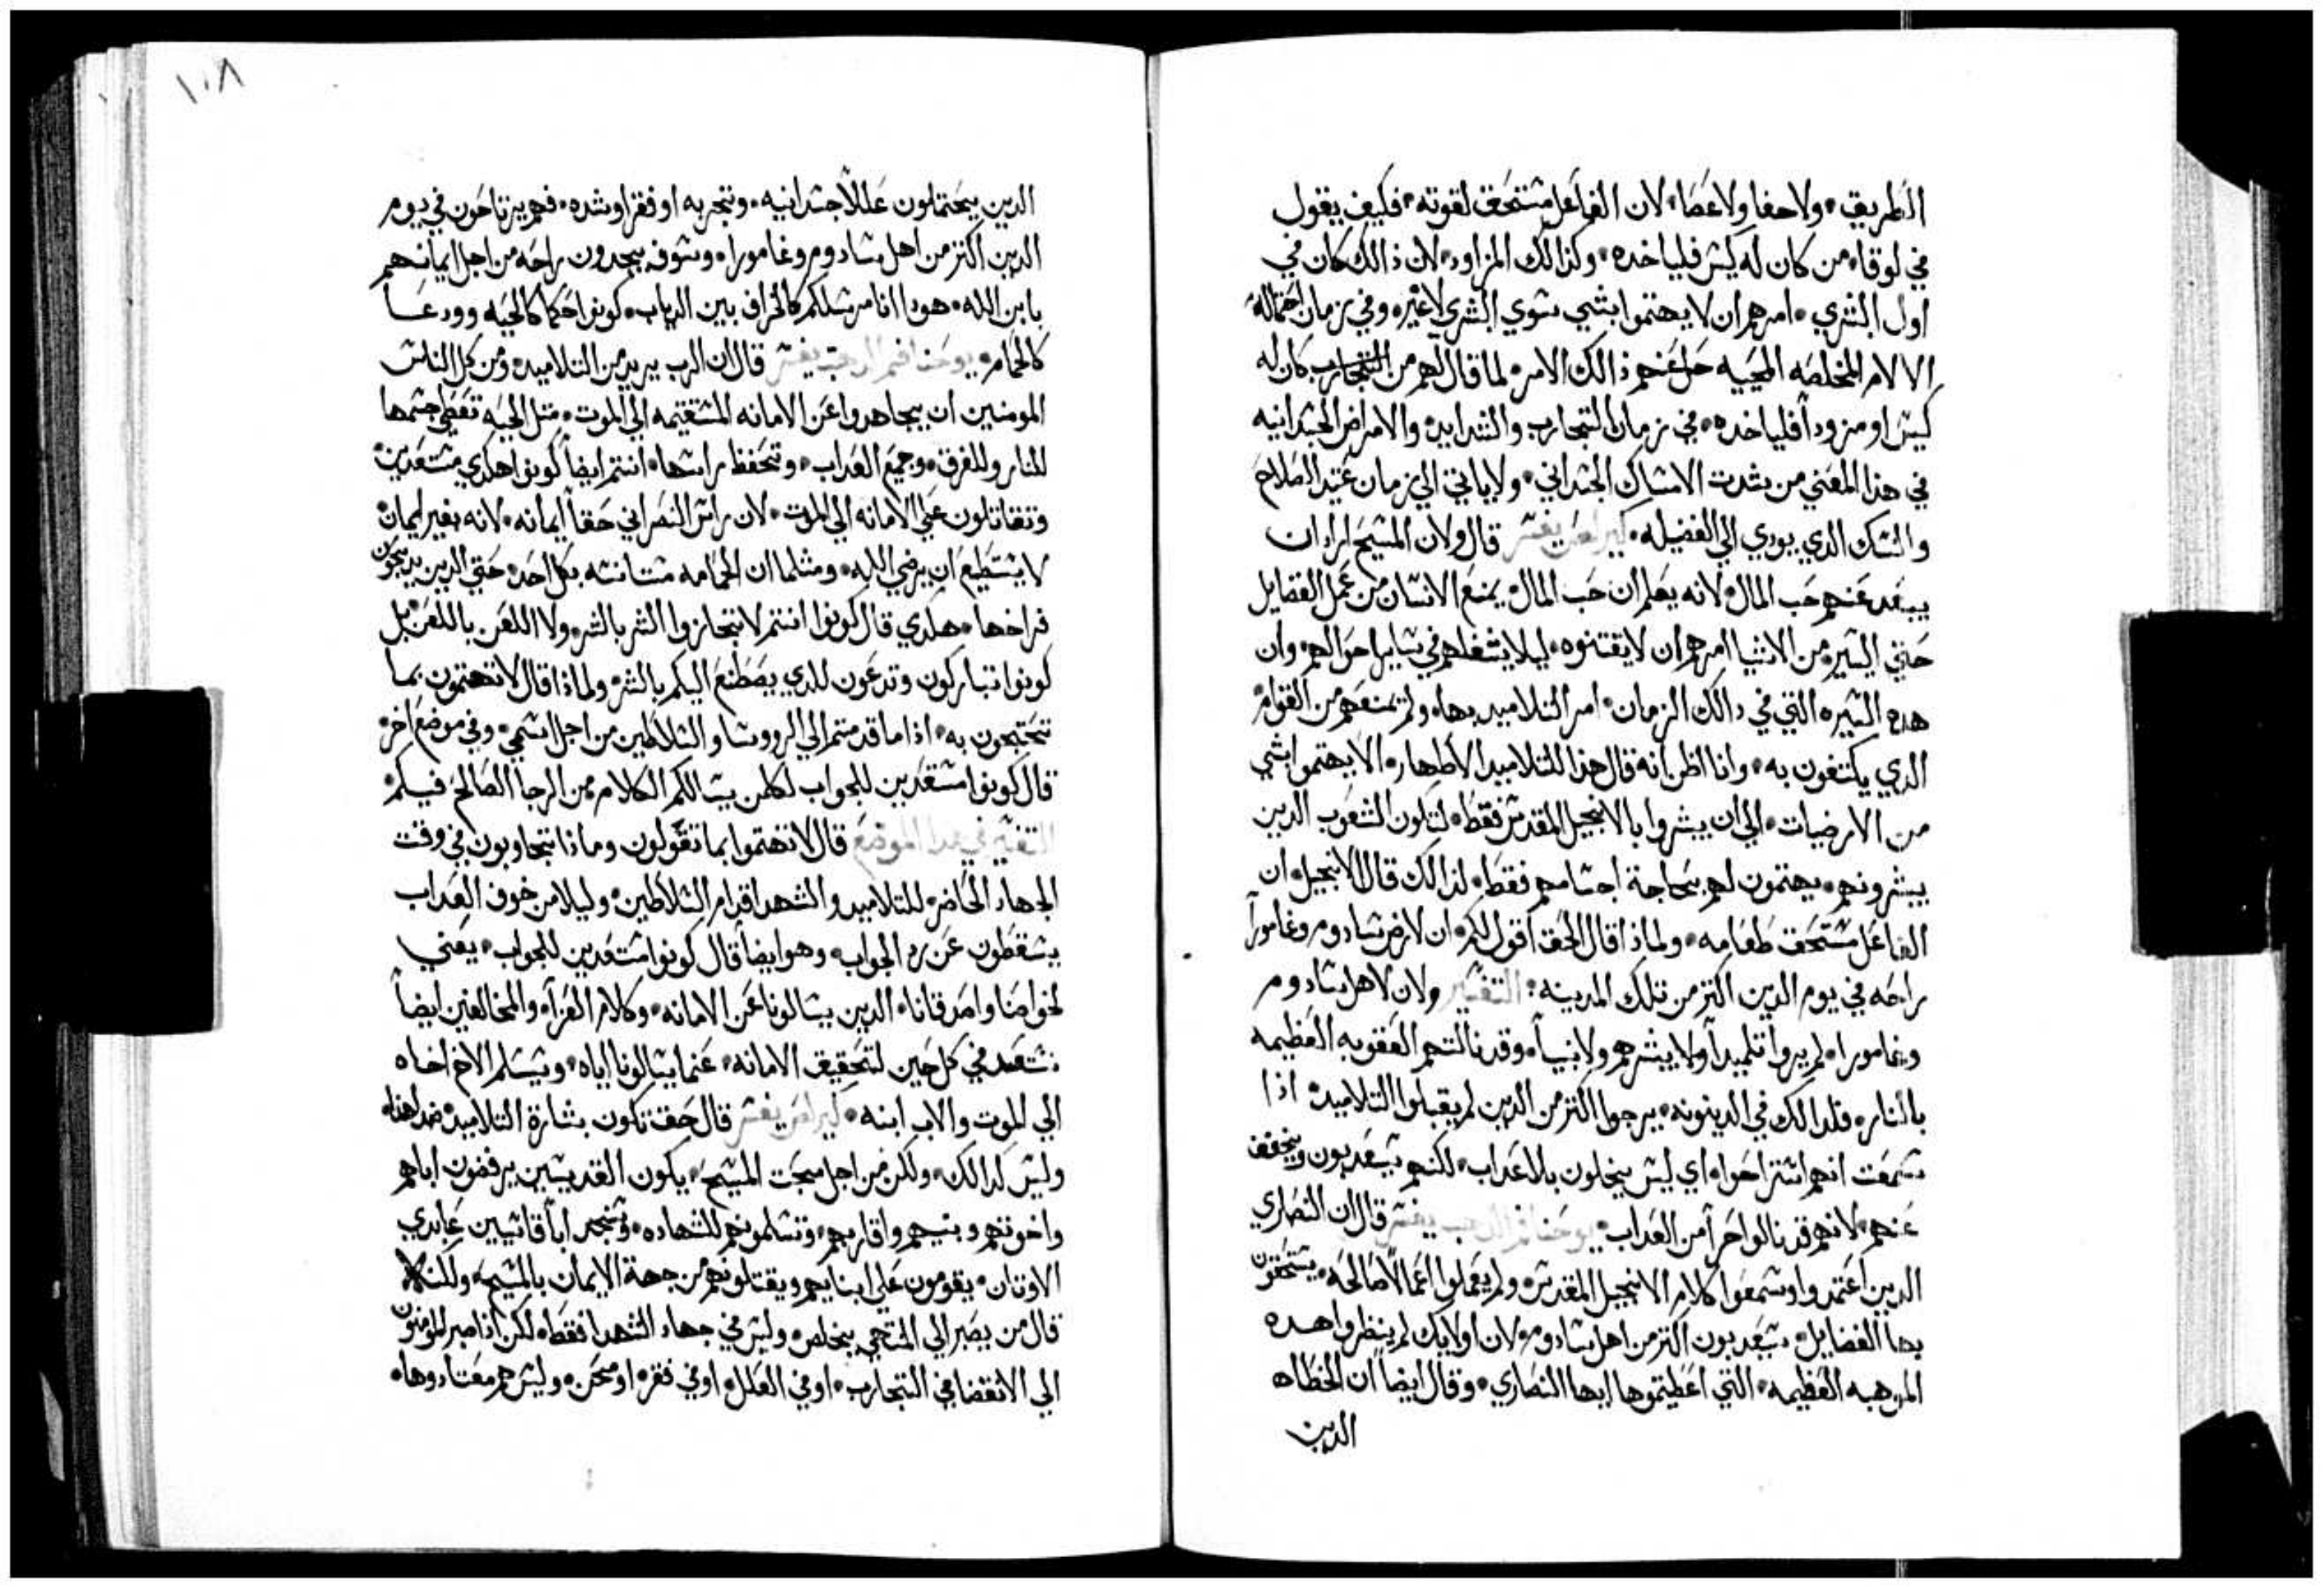 الطريق ولا حفا ولا عصا لان الفاعل مستحق لقوته فكيف يقول
في لوقا من كان له كيس فلياخده وكذالك المزاود لان ذالك كان في
اول البشري امرهم ان لا يهتموا بشي سوي البشري لا غير وفي زمان احتماله
الالام المخلصه المحييه حل عنهم ذالك الامر لما قال لهم من كان له
كيس او مزودا فلياخده في زمان التجارب والشدايد والامراض الجسدانيه
في هذا المعني من شدت الامساك الجسداني ولا ياتي الي زمان عتيد الصلاح
والنسك الدي يودي الي الفضيله كيرلص يفسر قال ولان المسيح اراد ان
يبعد عنهم حب المال لانه يعلم ان حب المال يمنع الانسان من عمل الفضايل
حتي اليسير من الاشيا امرهم ان لا يقتنوه ليلا يشغلهم في ساير احوالهم وان
هده السيره التي في دالك الزمان امر التلاميد بها ولم يمنعهم من القوام
الدي يكتفون به وانا اظن انه قال هذا للتلاميد الاطهار الا يهتموا بشي
من الارضيات الي ان يبشروا بالانجيل المقدس فقط لتكون الشعوب الدين
يبشرونهم يهتمون لهم بحاجة اجسامهم فقط لذالك قال الانجيل ان
الفاعل مستحق طعامه ولماذا قال الحق اقول لكم ان لارض سادوم وغامورا
راحه في يوم الدين اكثر من تلك المدينه التفسير ولان لاهل سادوم
وغامورا لم يروا تلميدا ولا يبشرهم ولا نبيا وقد نالتهم العقوبه العظيمه
بالنار فلدالك في الدينونه يرجوا اكثر من الدين لم يقبلوا التلاميد اذا
سمعت انهم استراحوا اي ليس يخلون بلا عداب لكنهم سيعدبون ويخفف
عنهم لانهم قد نالوا حرا من العداب يوحنا فم الدهب يفسر قال ان النصاري
الدين اعتمدوا وسمعوا كلام الانجيل المقدس ولم يعملوا اعمالا صالحه يستحقون
بها الفضايل سيعدبون اكثر من اهل سادوم لان اولايك لم ينظروا هده
الموهبه العظيمه التي اعطيتموها ايها النصاري وقال ايضا ان الخطاه
الدين
١٠٨
الدين يحتملون عللا جسدانيه وتجربه او فقر او شده فهم يرتاحون في يوم
الدين اكثر من اهل سادوم وغامورا وسوف يجدون راحه من اجل ايمانهم
بابن الله هودا انا مرسلكم كالخراف بين الدياب كونوا حكما كالحيه وودعا
كالحمام يوحنا فم الدهب يفسر قال ان الرب يريد من التلاميد ومن كل الناس
المومنين ان يجاهدوا عن الامانه المستقيمه الي الموت متل الحيه تعطي جسمها
للنار وللغرق وجميع العداب وتحفظ راسها انتم ايضا كونوا هكدي مستعدين
وتقاتلون علي الامانه الي الموت لان راس النصراني حقا ايمانه لانه بغير ايمان
لا يستطيع ان يرضي الله ومثلما ان الحمامه مستانسه بكل احد حتي الدين يدبحون
فراخها هكدي قال كونوا انتم لا تجازوا الشر بالشر ولا اللعن باللعن بل
كونوا تباركون وتدعون للدي يصطنع اليكم بالشر ولماذا قال لا تهتمون بما
تحتجون به اذا ما قدمتم الي الروسا والسلاطين من اجل اسمي وفي موضع اخر
قال كونوا مستعدين للجواب لكل من يسالكم الكلام من الرجا الصالح فيكم
التفسير في هدا الموضع قال لا تهتموا بما تقولون وماذا تجاوبون في وقت
الجهاد الحاضر للتلاميد والشهدا قدام السلاطين وليلا من خوف العداب
يسقطون عن رد الجواب وهو ايضا قال كونوا مستعدين للجواب يعني
لخواصنا واصدقانا الدين يسالونا عن الامانه وكلام القراه والمخالفين ايضا
نستعد في كل حين لتحقيق الامانه عندما يسالونا اياه ويسلم الاخ اخاه
الي الموت والاب ابنه كيرلص يفسر قال حقا تكون بشارة التلاميد ضد
وليس كدالك ولكن من اجل محبت المسيح يكون القديسين يرفضون اباهم
واخوتهم وبنيهم واقاربهم وتسلمونهم للشهاده وتجد ابا قاسيين عابدي
الاوتان يقومون علي ابنايهم ويقتلونهم من جهة الايمان بالمسيح
قال من يصبر الي المنتهي يخلص وليس في جهاد الشهدا فقط لكن اذا صبر المومنون
الي الانقضا في التجارب او في العلل او في فقر او محن وليس هم معتادوها